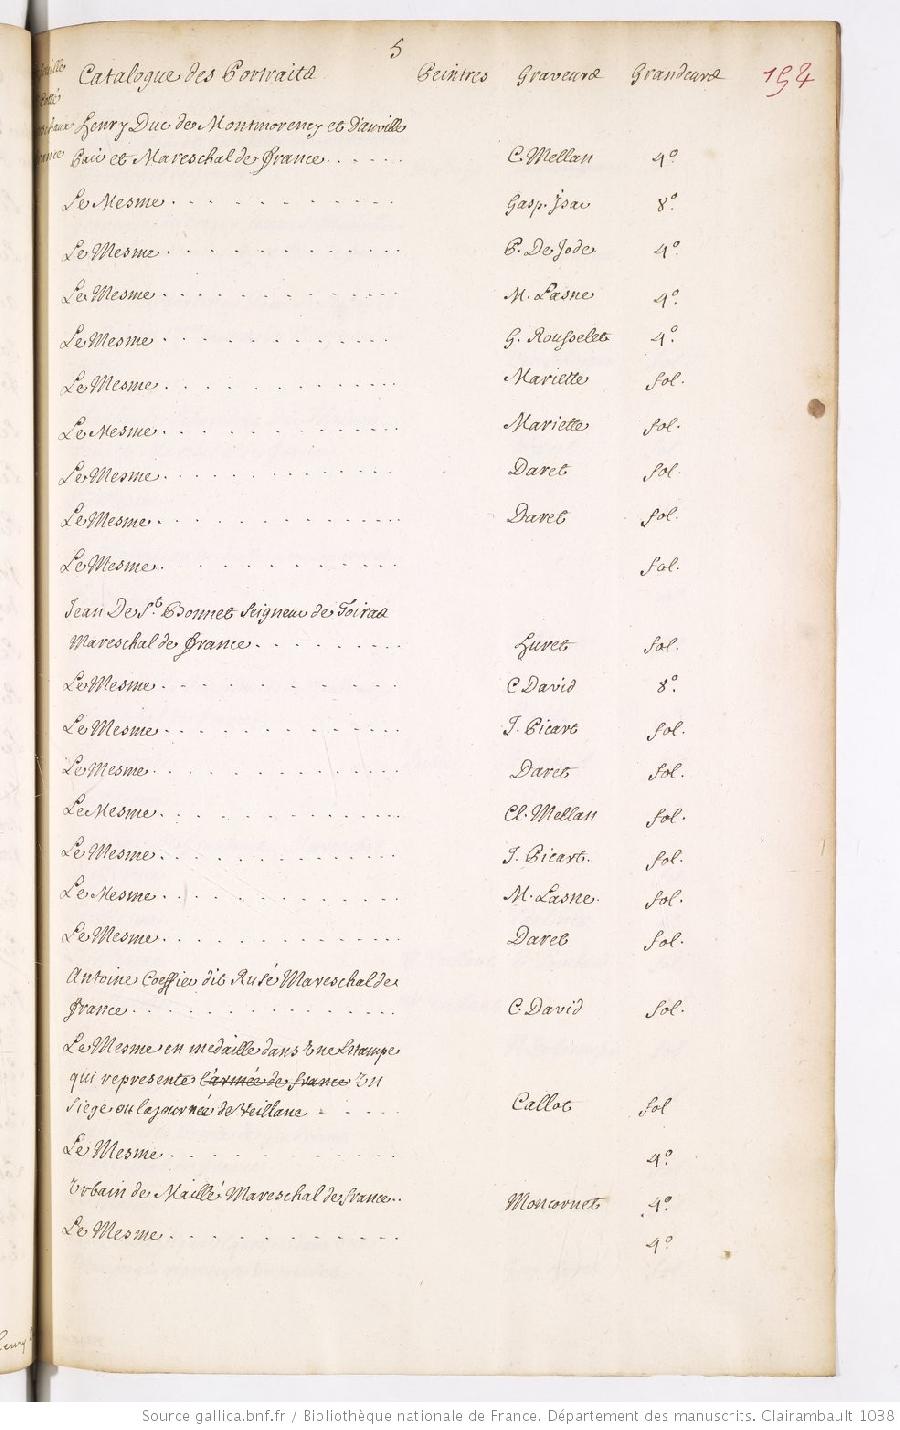 5
Catalogue des Portraits Peintres Graveurs Grandeurs 154
Henry Duc de Montmorency et Danville
Pair et Mareschal de france . . . . . . C. Mellan 4º
Le Mesme . . . . . . . . . . Gasp. Isac 8º.
Le Mesme . . . . . . . . . . P. De Jode 4º
Le Mesme . . . . . . . . . . M. Lasne 4º.
Le Mesme . . . . . . . . . . G. Rousselet 4º.
Le Mesme . . . . . . . . . . Mariette fol.
Le Mesme . . . . . . . . . . Mariette fol.
Le Mesme . . . . . . . . . . Daret fol.
Le Mesme . . . . . . . . . . Daret fol.
Le Mesme . . . . . . . . . . fol.
Jean De St. Bonnet Seigneur de Toiras
Mareschal de france . . . . . . . . . Huret fol.
Le Mesme . . . . . . . . . . C David 8º.
Le Mesme . . . . . . . . . . J. Picart fol.
Le Mesme . . . . . . . . . . Daret fol.
Le Mesme . . . . . . . . . . Cl. Mellan fol.
Le Mesme . . . . . . . . . . J. Picart. fol.
Le Mesme . . . . . . . . . . M. Lasne. fol.
Le Mesme . . . . . . . . . . Daret fol.
Antoine Coeffier dit Rusé Mareschal de
france . . . . . . . . . . . . C David fol.
Le Mesme en medaille dans Une Estampe
qui represente l'armée de france Un
Siege ou la journée de Veillane . . . . . Callot fol
Le Mesme . . . . . . . . . . 4º.
Urbain de Maillé Mareschal de france . . Moncornet 4º.
Le Mesme . . . . . . . . . . 4º
Source gallica.bnf.fr / Bibliothèque nationale de France. Département des manuscrits. Clairambault 1038